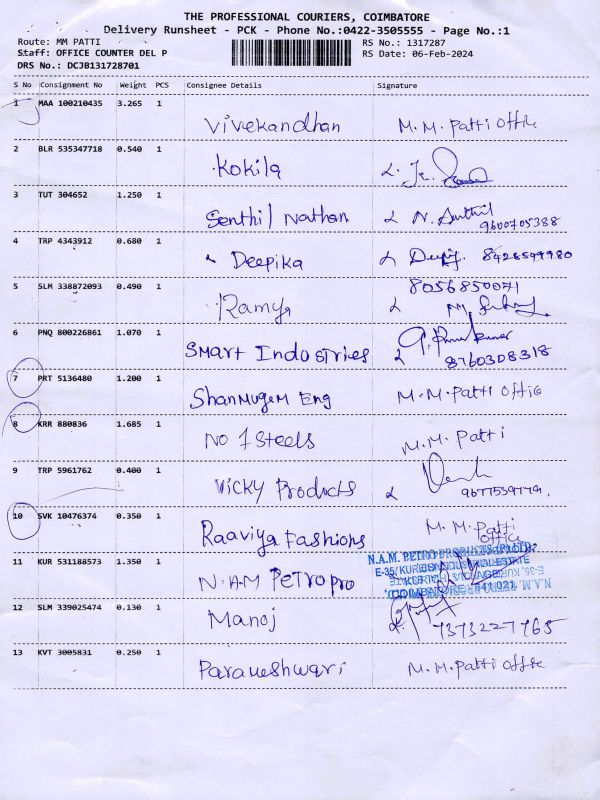 THE PROFESSIONAL COURIERS, COIMBATORE
Delivery Runsheet - PCK - Phone No.:0422-3505555 - Page No.:1
Route: MM PATTI RS No.: 1317287
Staff: OFFICE COUNTER DEL P RS Date: 06-Feb-2024
DRS No.: DCJB131728701
S No Consignment No Weight PCS Consignee Details Signature
1 MAA 100210435 3.265 1
Vivekandhan M.M. Patti Office
2 BLR 535347718 0.540 1
Kokila
3 TUT 304652 1.250 1
Senthil Nathan N. Senthil
9600705388
4 TRP 4343912 0.680 1
Deepika 8428549980
5 SLM 338872093 0.490 1 8056850071
Ramya
6 PNQ 800226861 1.070 1
Smart Indostries 8760308318
7 PRT 5136480 1.200 1
Shanmugem Eng M.M. Patti Office
8 KRR 880836 1.685 1
No 1 Steels M.M. Patti
9 TRP 5961762 0.400 1
Vicky Products
10 SVK 10476374 0.350 1
Raaviya Fashions M.M. Patti
office
11 KUR 531188573 1.350 1
N.A.M. PETRO PRODUCTS (P) LTD.
N.A.M Petropro
12 SLM 339025474 0.130 1
Manoj 7373227765
13 KVT 3005831 0.250 1
Parameshwari M.M. Patti office